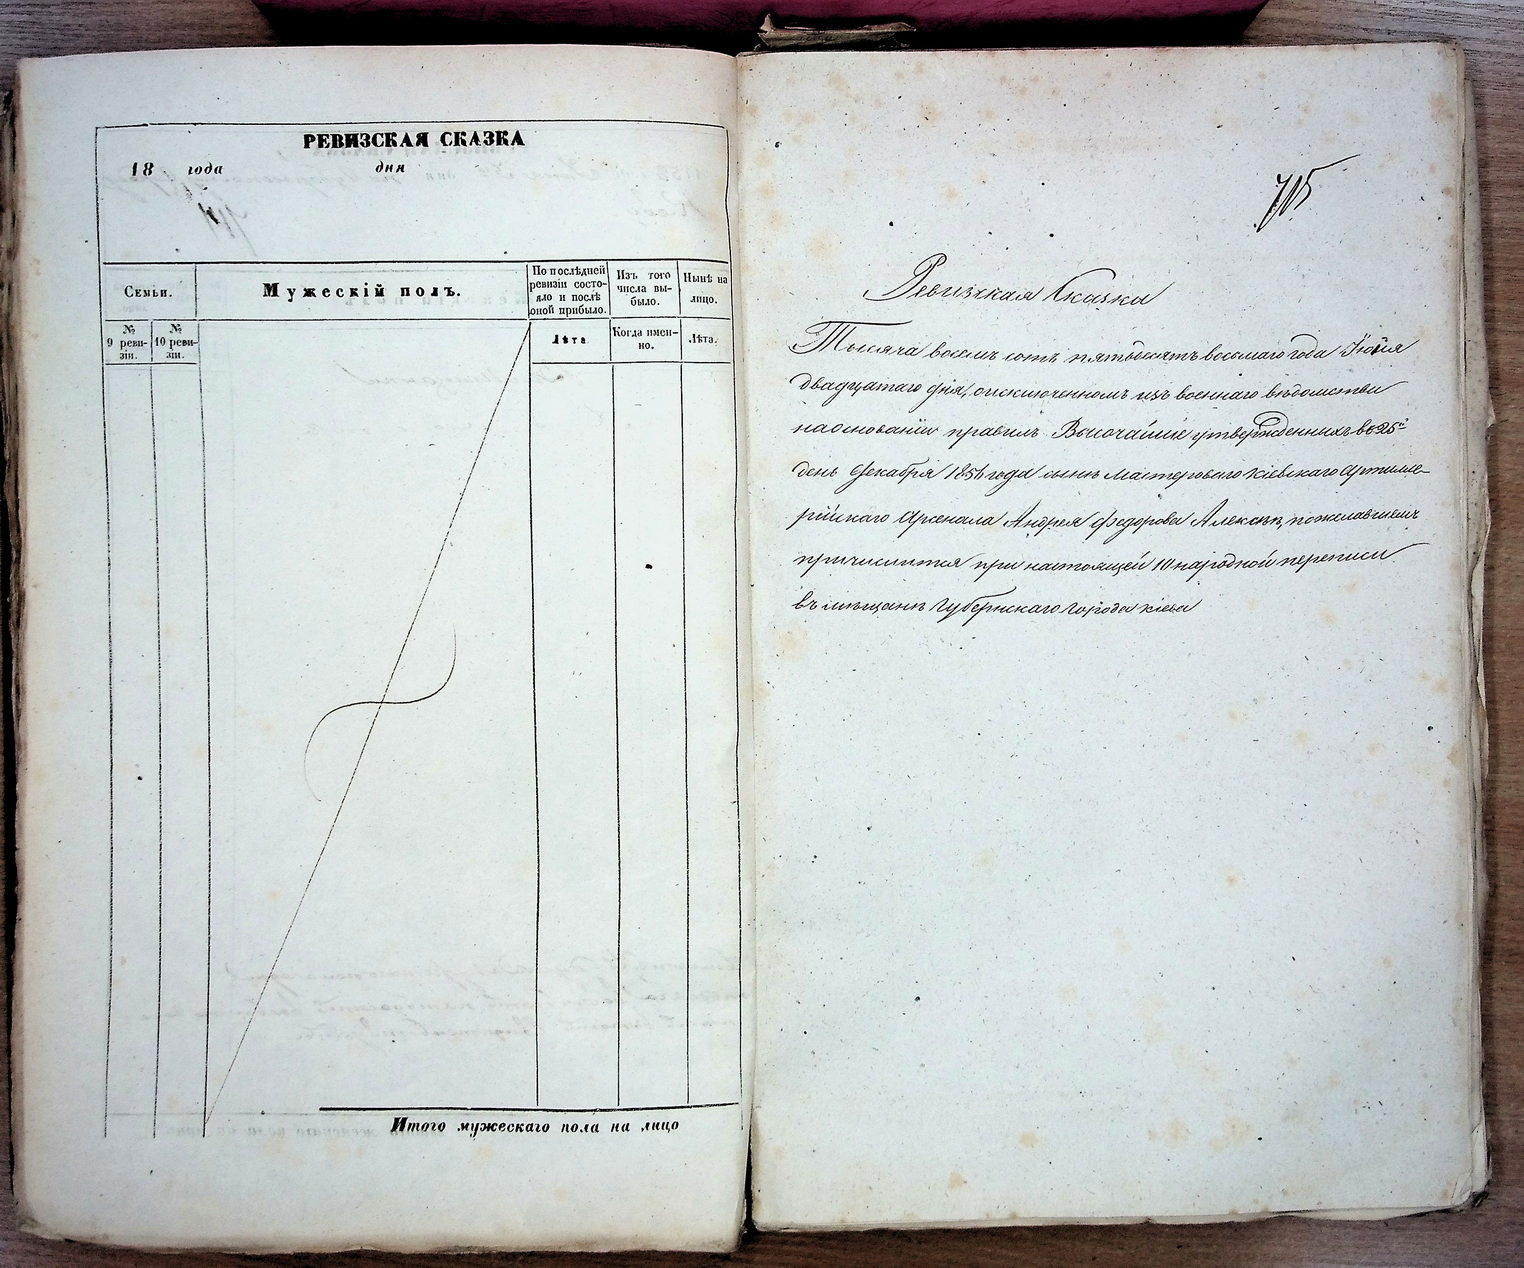 РЕВИЗСКАЯ СКАЗКА
18 года дня
Семьи.
Мужескій полъ.
По послѣдней
ревизіи состо-
яло и послѣ
оной прибыло.
Изъ того
числа вы-
было.
Нынѣ на
лицо.
№
9 реви-
зіи.
№
10 реви-
зіи.
Лѣта
Когда имен-
но.
Лѣта.
Итого мужескаго пола на лицо
715
Ревизская Сказка
Тысяча восемь сотъ пятьдесятъ восьмаго года Іюня
двадцатаго дня, о исключенномъ изъ военнаго вѣдомства
на основаніи правилъ Высочайше утвержденныхъ въ 25й
день декабря 1856 года сынѣ мастероваго Кіевскаго Артилле-
рійскаго Арсенала Андрея Федорова Алексѣѣ, пожелавшемъ
причислится при настоящей 10 народной переписи
въ мѣщане Губернскаго Города Кіева